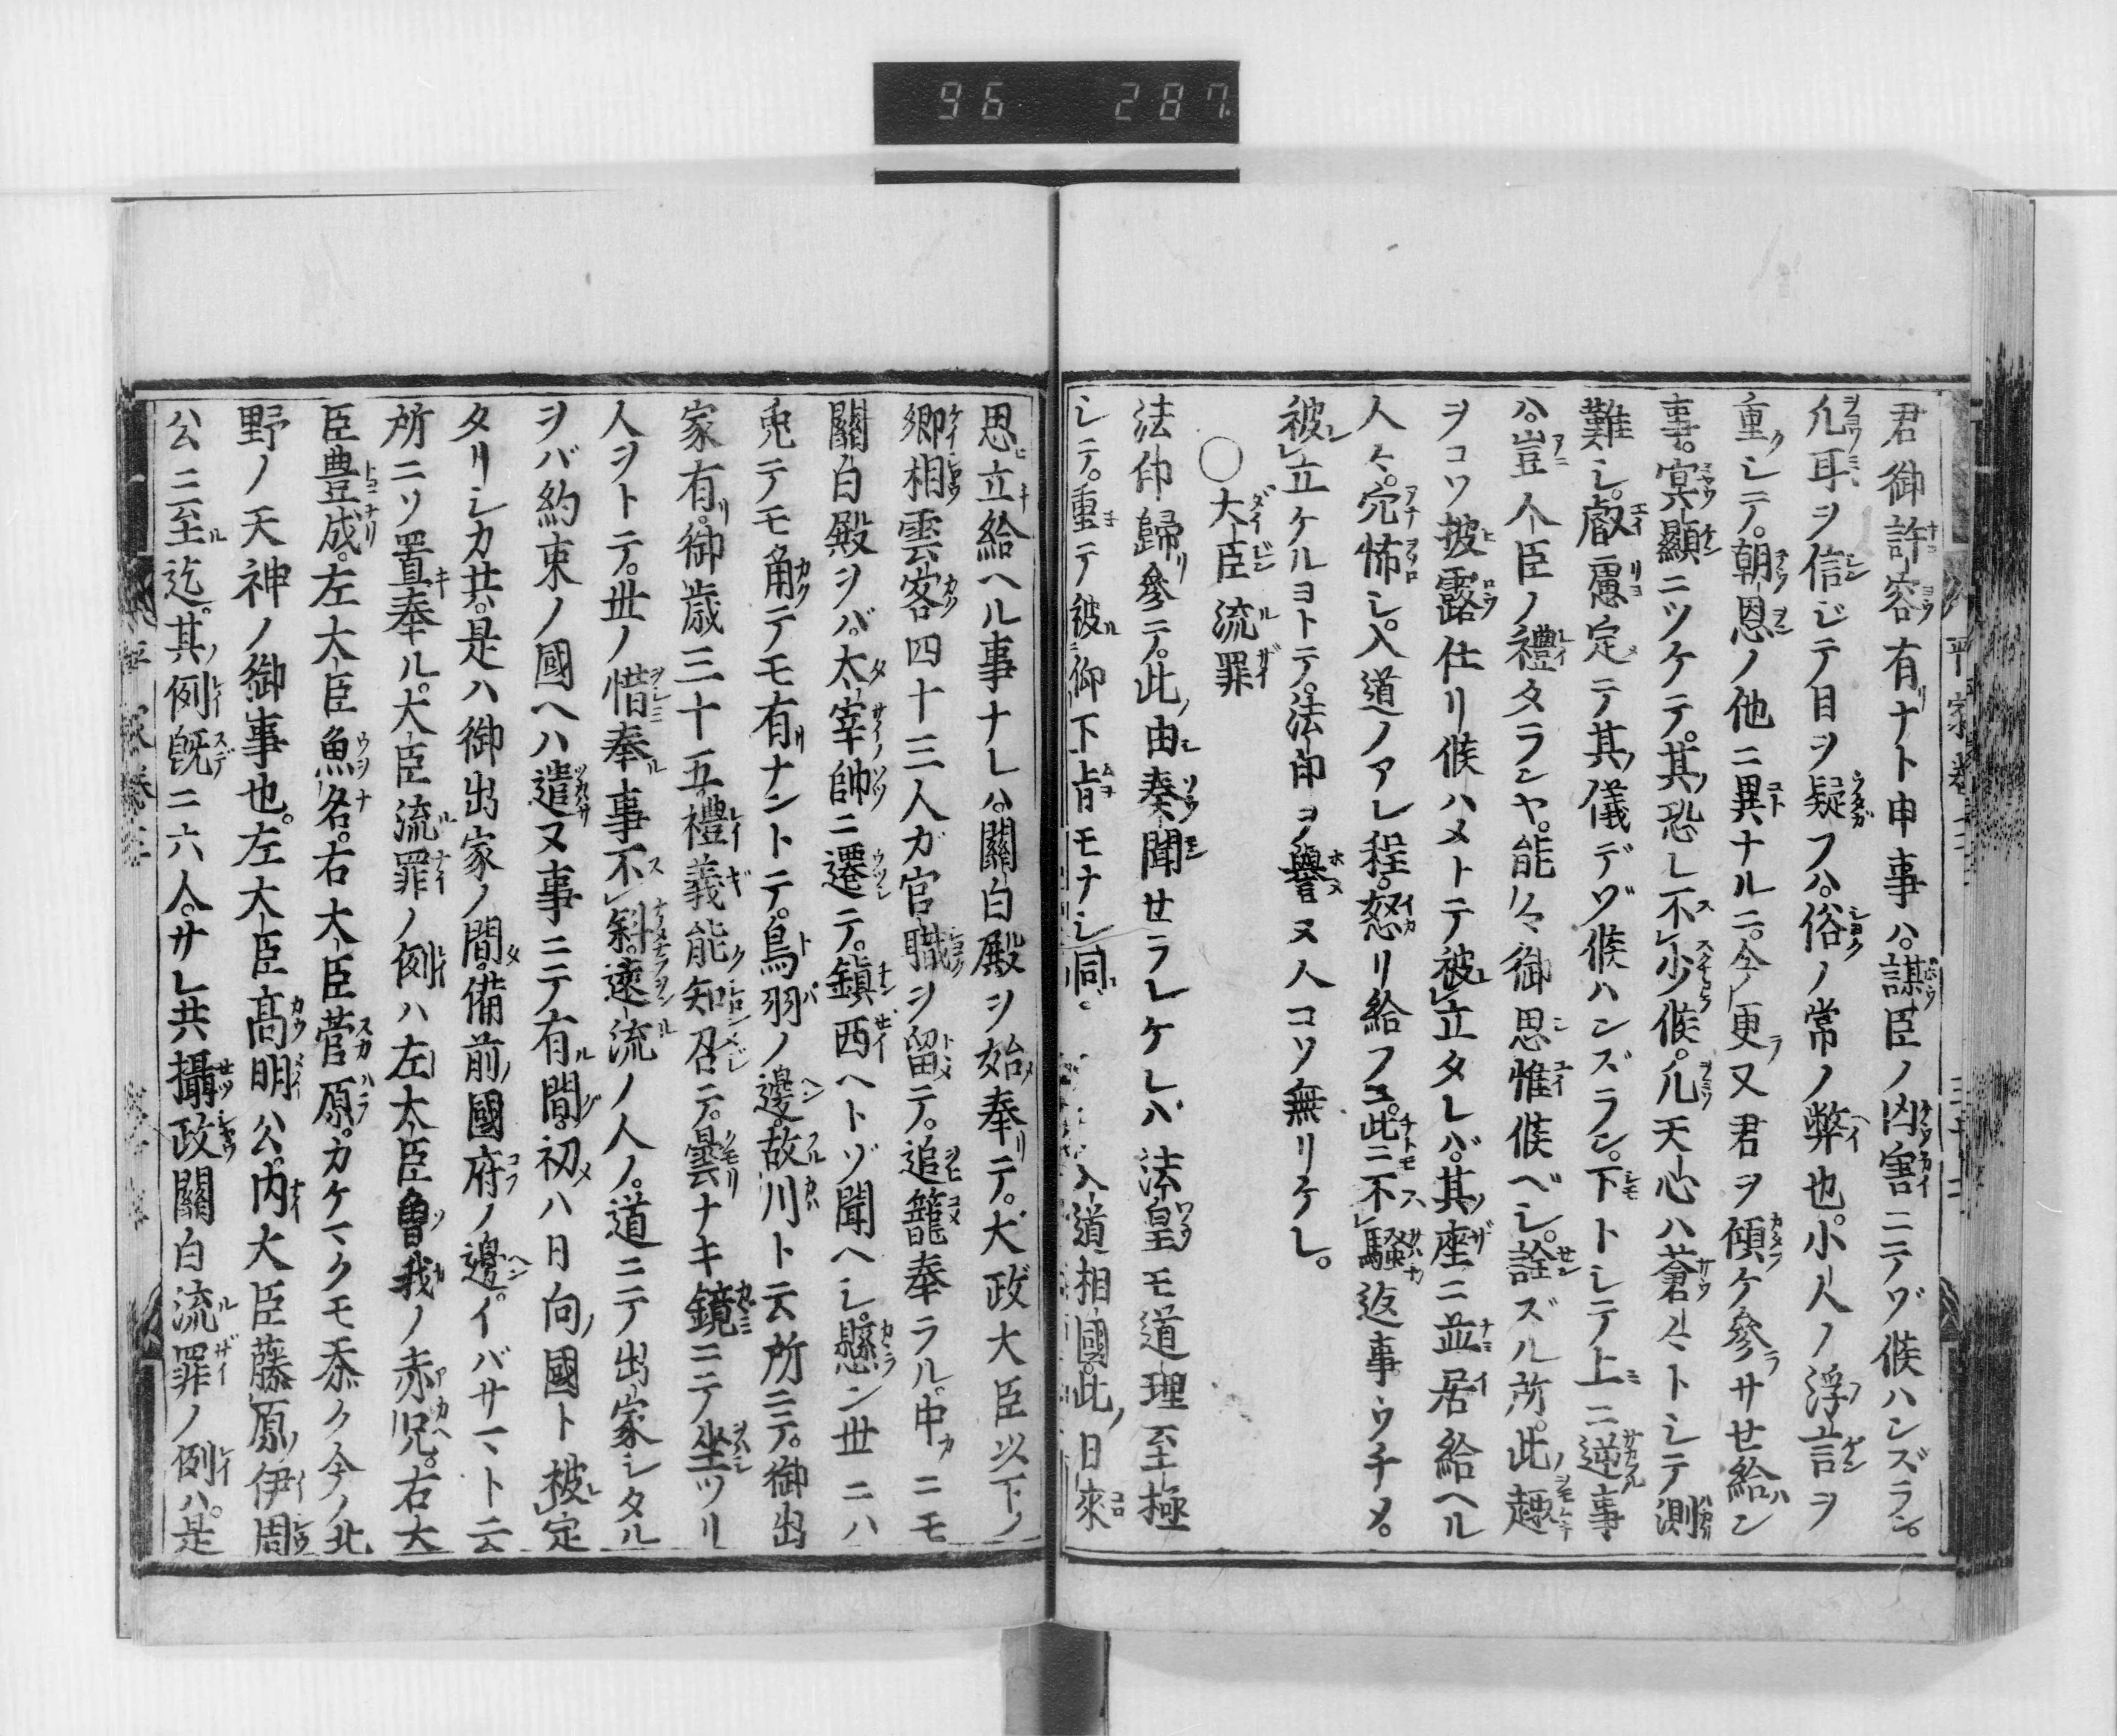 96 287
君御許容有ナト申事ハ。謀臣ノ凶害ニテヅ候ハンズラン。
凡耳ヲ信ジテ目ヲ疑フハ。俗ノ常ノ弊也。小人ノ浮言ヲ
重シテ。朝恩ノ他ニ異ナルニ。今更又君ヲ傾ケ參サセ給ハン
事。冥顯ニツケテ。其恐レ不少候。凡天心ハ蒼々トシテ測
難シ。叡慮定テ其儀デヅ候ハンズラン。下トシテ上ニ逆事
ハ。豈人臣ノ禮タランヤ。能々御思惟候ベシ。詮ズル所。此趣
ヲコソ披露仕リ候ハメトテ被立タレバ。其座ニ並居給ヘル
人々。穴怖シ。入道ノアレ程。怒リ給フニ。此ニ不騷返事ウチメ。
被立ケルヨトテ。法印ヲ譽ヌ人コソ無リケレ。
〇大臣流罪
法印歸リ參テ。此由奏聞せラレケレバ法皇モ道理至極
シテ。重テ被仰下旨モナシ同 入道相國。此日來
思立給ヘル事ナレハ。關白殿ヲ始奉リテ。大政大臣以下ノ
卿相雲客四十三人ガ官職ヲ留テ。追籠奉ラル。中ニモ
關白殿ヲバ。太宰帥ニ遷テ。鎮西ヘトゾ聞ヘシ。懸ン世ニハ
兎テモ角テモ有ナントテ。鳥羽ノ邊。故川ト云所ニテ。御出
家有リ。御歳三十五。禮義能知召テ。曇ナキ鏡ニテ坐ツリ
人ヲトテ。世ノ惜奉ル事不斜。遠流ノ人ノ。道ニテ出家シタル
ヲバ約束ノ國ヘハ遣ヌ事ニテ有間。初ハ日向國ト被定
タリシカ共。是ハ御出家ノ間。備前國府ノ邊。イバサマト云
所ニソ置奉ル。大臣流罪ノ例ハ左大臣曾我ノ赤兄。右大
臣豊成。左大臣魚名。右大臣菅原。カケマクモ忝ク今ノ北
野ノ天神ノ御事也。左大臣髙明公。内大臣藤原伊周
公ニ至ル迄。其例既ニ六人。サレ共攝政關白流罪ノ例ハ。是